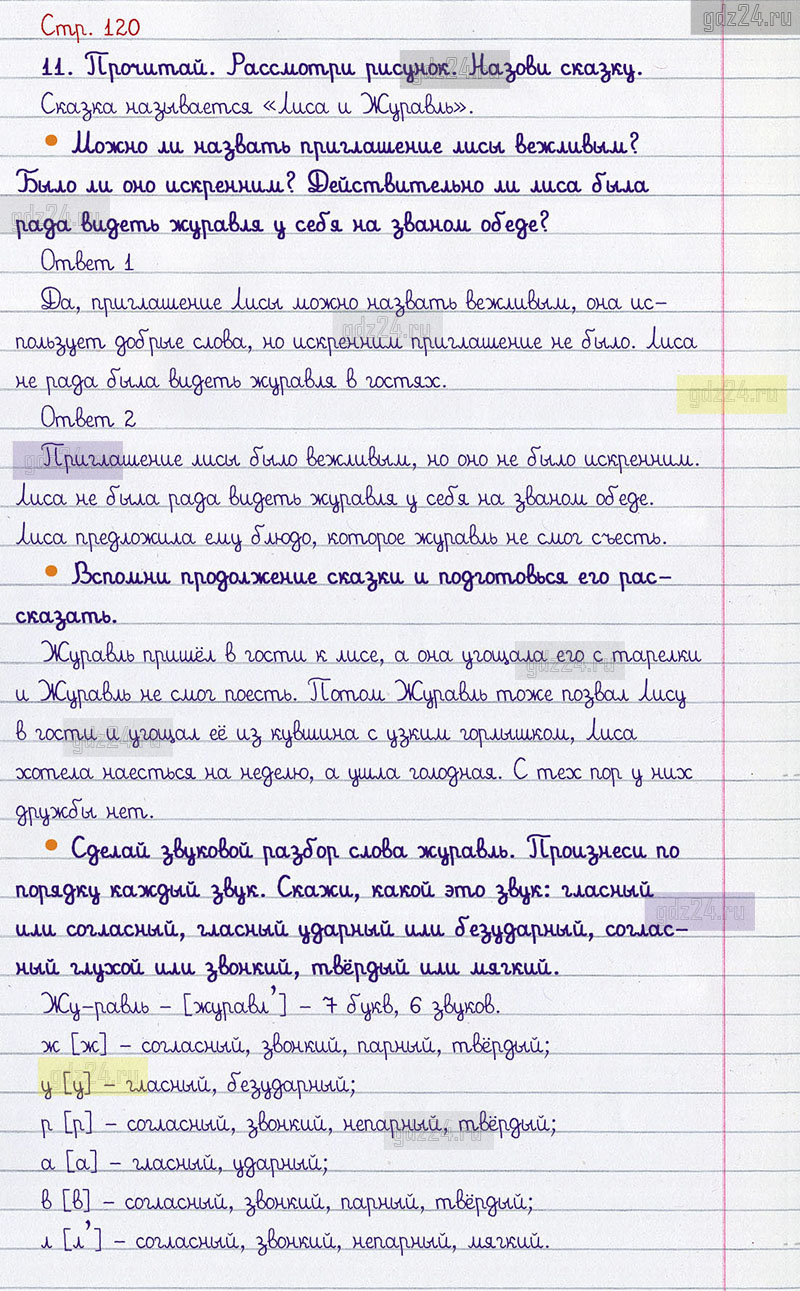 gdz24.ru
Стр. 120
11. Прочитай. Рассмотри рисунок. Назови сказку.
Сказка называется «Лиса и Журавль».
• Можно ли назвать приглашение лисы вежливым?
Было ли оно искренним? Действительно ли лиса была
рада видеть журавля у себя на званом обеде?
Ответ 1
Да, приглашение Лисы можно назвать вежливым, она ис-
пользует добрые слова, но искренним приглашение не было. Лиса
не рада была видеть журавля в гостях.
Ответ 2
Приглашение лисы было вежливым, но оно не было искренним.
Лиса не была рада видеть журавля у себя на званом обеде.
Лиса предложила ему блюдо, которое журавль не смог съесть.
• Вспомни продолжение сказки и подготовься его рас-
сказать.
Журавль пришёл в гости к лисе, а она угощала его с тарелки
и Журавль не смог поесть. Потом Журавль тоже позвал Лису
в гости и угощал её из кувшина с узким горлышком, Лиса
хотела наесться на неделю, а ушла голодная. С тех пор у них
дружбы нет.
• Сделай звуковой разбор слова журавль. Произнеси по
порядку каждый звук. Скажи, какой это звук: гласный
или согласный, гласный ударный или безударный, соглас-
ный глухой или звонкий, твёрдый или мягкий.
Жу-равль – [журавл'] – 7 букв, 6 звуков.
ж [ж] – согласный, звонкий, парный, твёрдый;
у [у] – гласный, безударный;
р [р] – согласный, звонкий, непарный, твёрдый;
а [а] – гласный, ударный;
в [в] – согласный, звонкий, парный, твёрдый;
л [л'] – согласный, звонкий, непарный, мягкий.